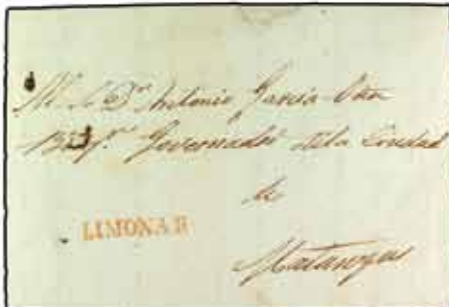 M. S. Dn. Antonio Garcia Oña
Governador de la Ciudad
de
LIMONAR
Matanzas